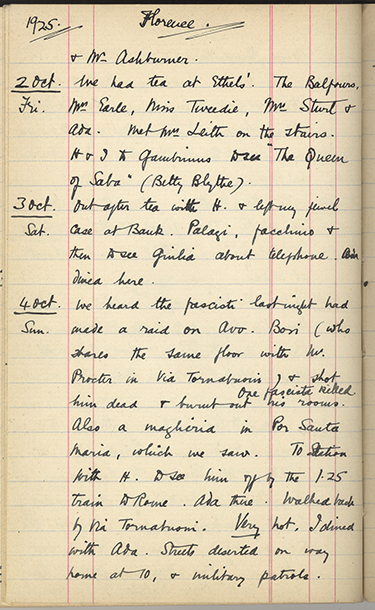 1925. Florence.
& Mr Ashburner.
2 Oct. We had tea at Ethels'. The Balfours,
Fri. Mrs Earle, Miss Tweedie, Mrs Sturt &
Ada. Met Mrs Leith on the stairs.
H & I to Gambrinus to see "The Queen
of Saba" (Betty Blythe).
3 Oct. Out after tea with H. & left my jewel
Sat. case at Bank. Palagi, facchino &
then to see Giulia about telephone.
dined here.
4 Oct. We heard the fascisti last night had
Sun. made a raid on Avv. (who
shares the same floor with Mr.
Procter in Via Tornabuoni) & shot
One fascista killed
him dead & burnt out his rooms.
Also a in Por Santa
Maria, which we saw. To Station
with H. to see him off by the 1.25
train to Rome. Ada there. Walked back
by Via Tornabuoni. Very hot, I dined
with Ada. Streets deserted on way
home at 10, & military patrols.